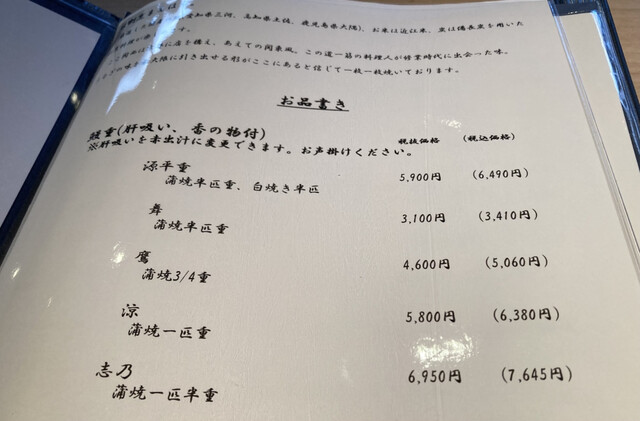 愛知県三河、高知県土佐、鹿児島県大隅)、お米は近江米、炭は備長炭を用いた
に店を構え、あえての関東風。この道一筋の料理人が修業時代に出会った味。
大限に引き出せる形がここにあると信じて一枚一枚焼いております。
お品書き
鰻重(肝吸い、香の物付) 税抜価格 (税込価格)
※肝吸いを赤出汁に変更できます。お声掛けください。
源平重 5,900円 (6,490円)
蒲焼半匹重、白焼き半匹
舞 3,100円 (3,410円)
蒲焼半匹重
鷹 4,600円 (5,060円)
蒲焼3/4重
涼 5,800円 (6,380円)
蒲焼一匹重
志乃 6,950円 (7,645円)
蒲焼一匹半重